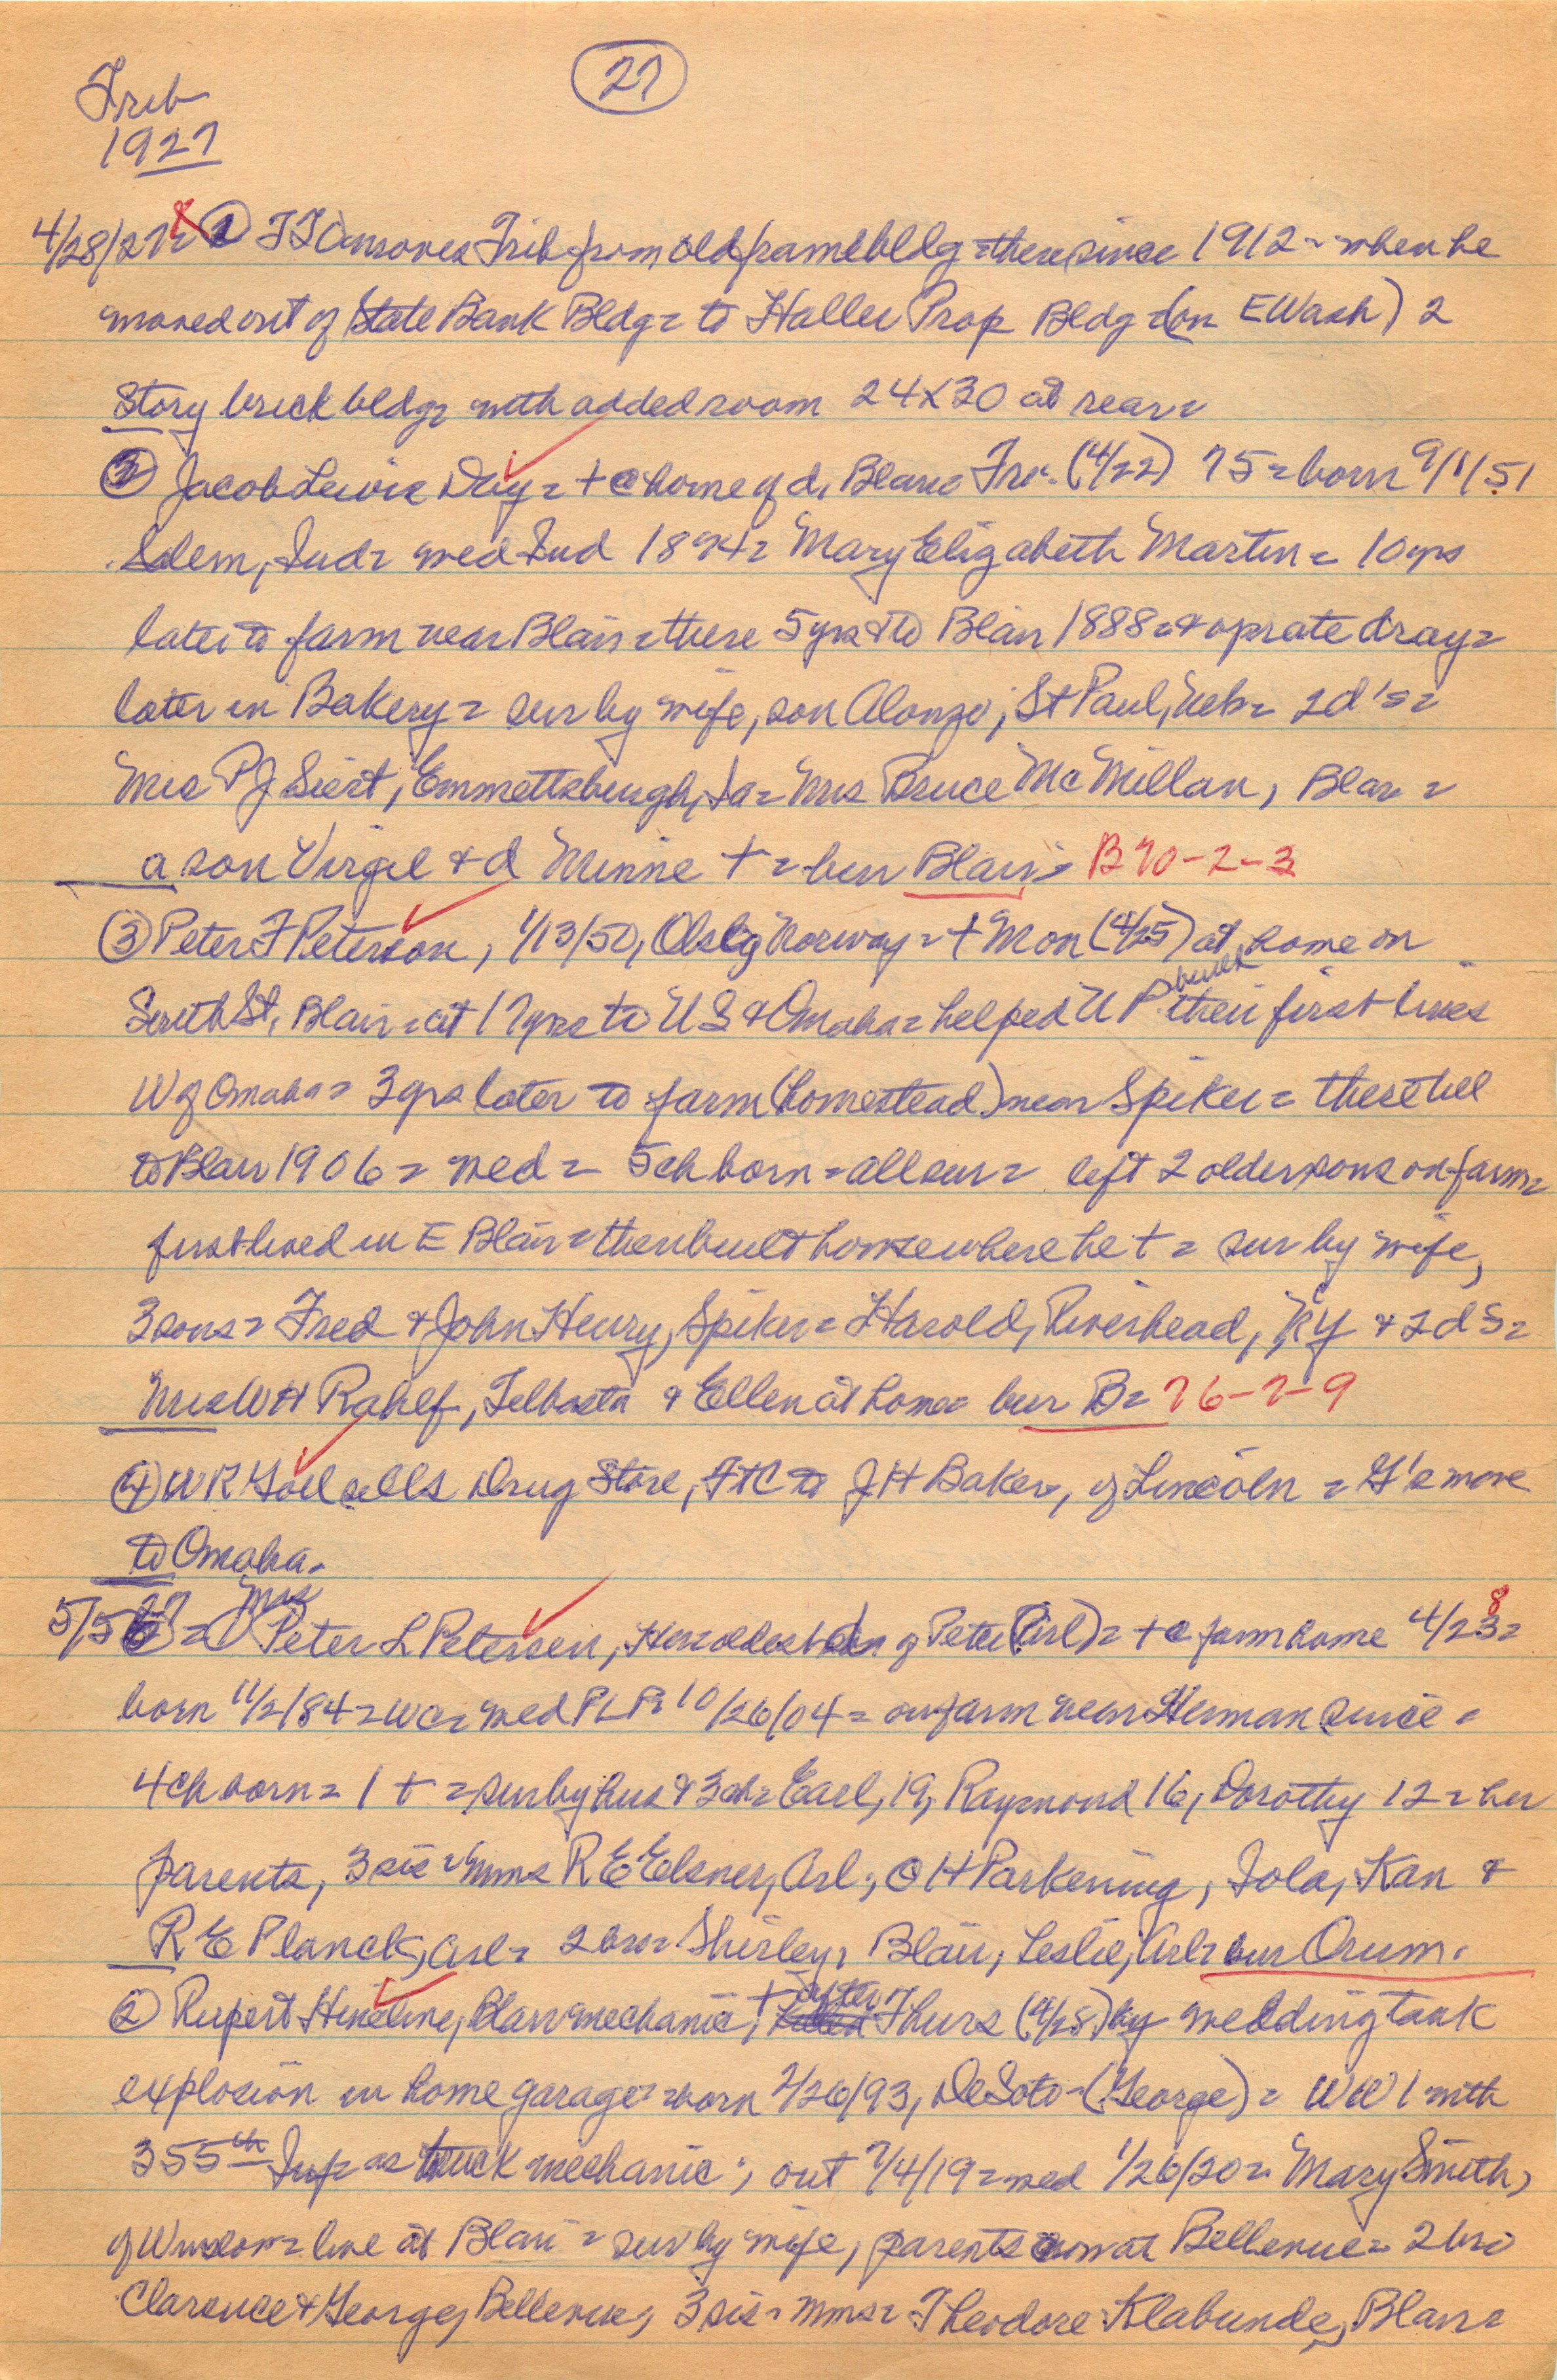 27
Trib
1927
4/28/27= 1 Trib from old frame bldg = there since 1912 - when he
moved out of State Bank Bldg = to Haller Prop Bldg (on E Wash) 2
story brick bldg with added room 24x30 at rear =
2 Jacob Lewis Day = + @ home of d, Blair Fri. (4/22) 75 = born 9/1/51
Salem, Ind = med Ind 1874 = Mary Elizabeth Martin = 10 yrs
later to farm near Blair = there 5 yrs & to Blair 1888 = & oprate dray =
later in Bakery = sur by wife, son Alonzo, St Paul, Neb = 2 d's =
Mrs P J Siert, Emmettsburgh, Ia = Mrs Bruce McMillan, Blair =
a son Virgil & d Minnie + = bur Blair = B 70-2-3
3 Peter F Peterson, 1/13/50, Norway = + Mon (4/25) at home on
South St, Blair = at 17 yrs to US & Omaha = helped UP build their first lines
W of Omaha = 3 yrs later to farm (homestead) near Spiker = there till
to Blair 1906 = med = 5 ch born = all sur = left 2 older sons on farm =
first lived in E Blair = then built home where he + = sur by wife,
3 sons = Fred & John Henry, Spiker = Harold, Riverhead, NY & 2 d's =
Mrs W H Rahlf, Telbasta & Ellen at home = bur B = 76-7-9
4 W R Goll sells Drug Store, FtC to J H Baker, of Lincoln = G's move
to Omaha.
5/5/27 = 1 Mrs Peter L Petersen, oldest of Peter (Arl) = + @ farm home 4/28 =
born 11/2/84 = WC = med PLP 10/26/04 = on farm near Herman since =
4 ch born = 1 + = sur by hus & 3 ch = Earl, 19, Raymond 16, Dorothy 12 = her
parents, 3 sis = Mms R E Elsner, Arl, O H Parkening, Iola, Kan &
R E Planck, Arl = 2 bro = Shirley, Blair, Leslie, Arl = bur Orum.
2 Rupert Hineline, Blair mechanic, + after Thurs (4/28) by welding tank
explosion in home garage = born 2/26/93, DeSoto - (George) = WW 1 with
355th Inf = as truck mechanic, out 7/4/19 = med 1/26/20 = Mary Smith,
of Winslow = live at Blair = sur by wife, parents now at Bellevue = 2 bro
Clarence & George, Bellevue, 3 sis = Mms = Theodore Klabunde, Blair =